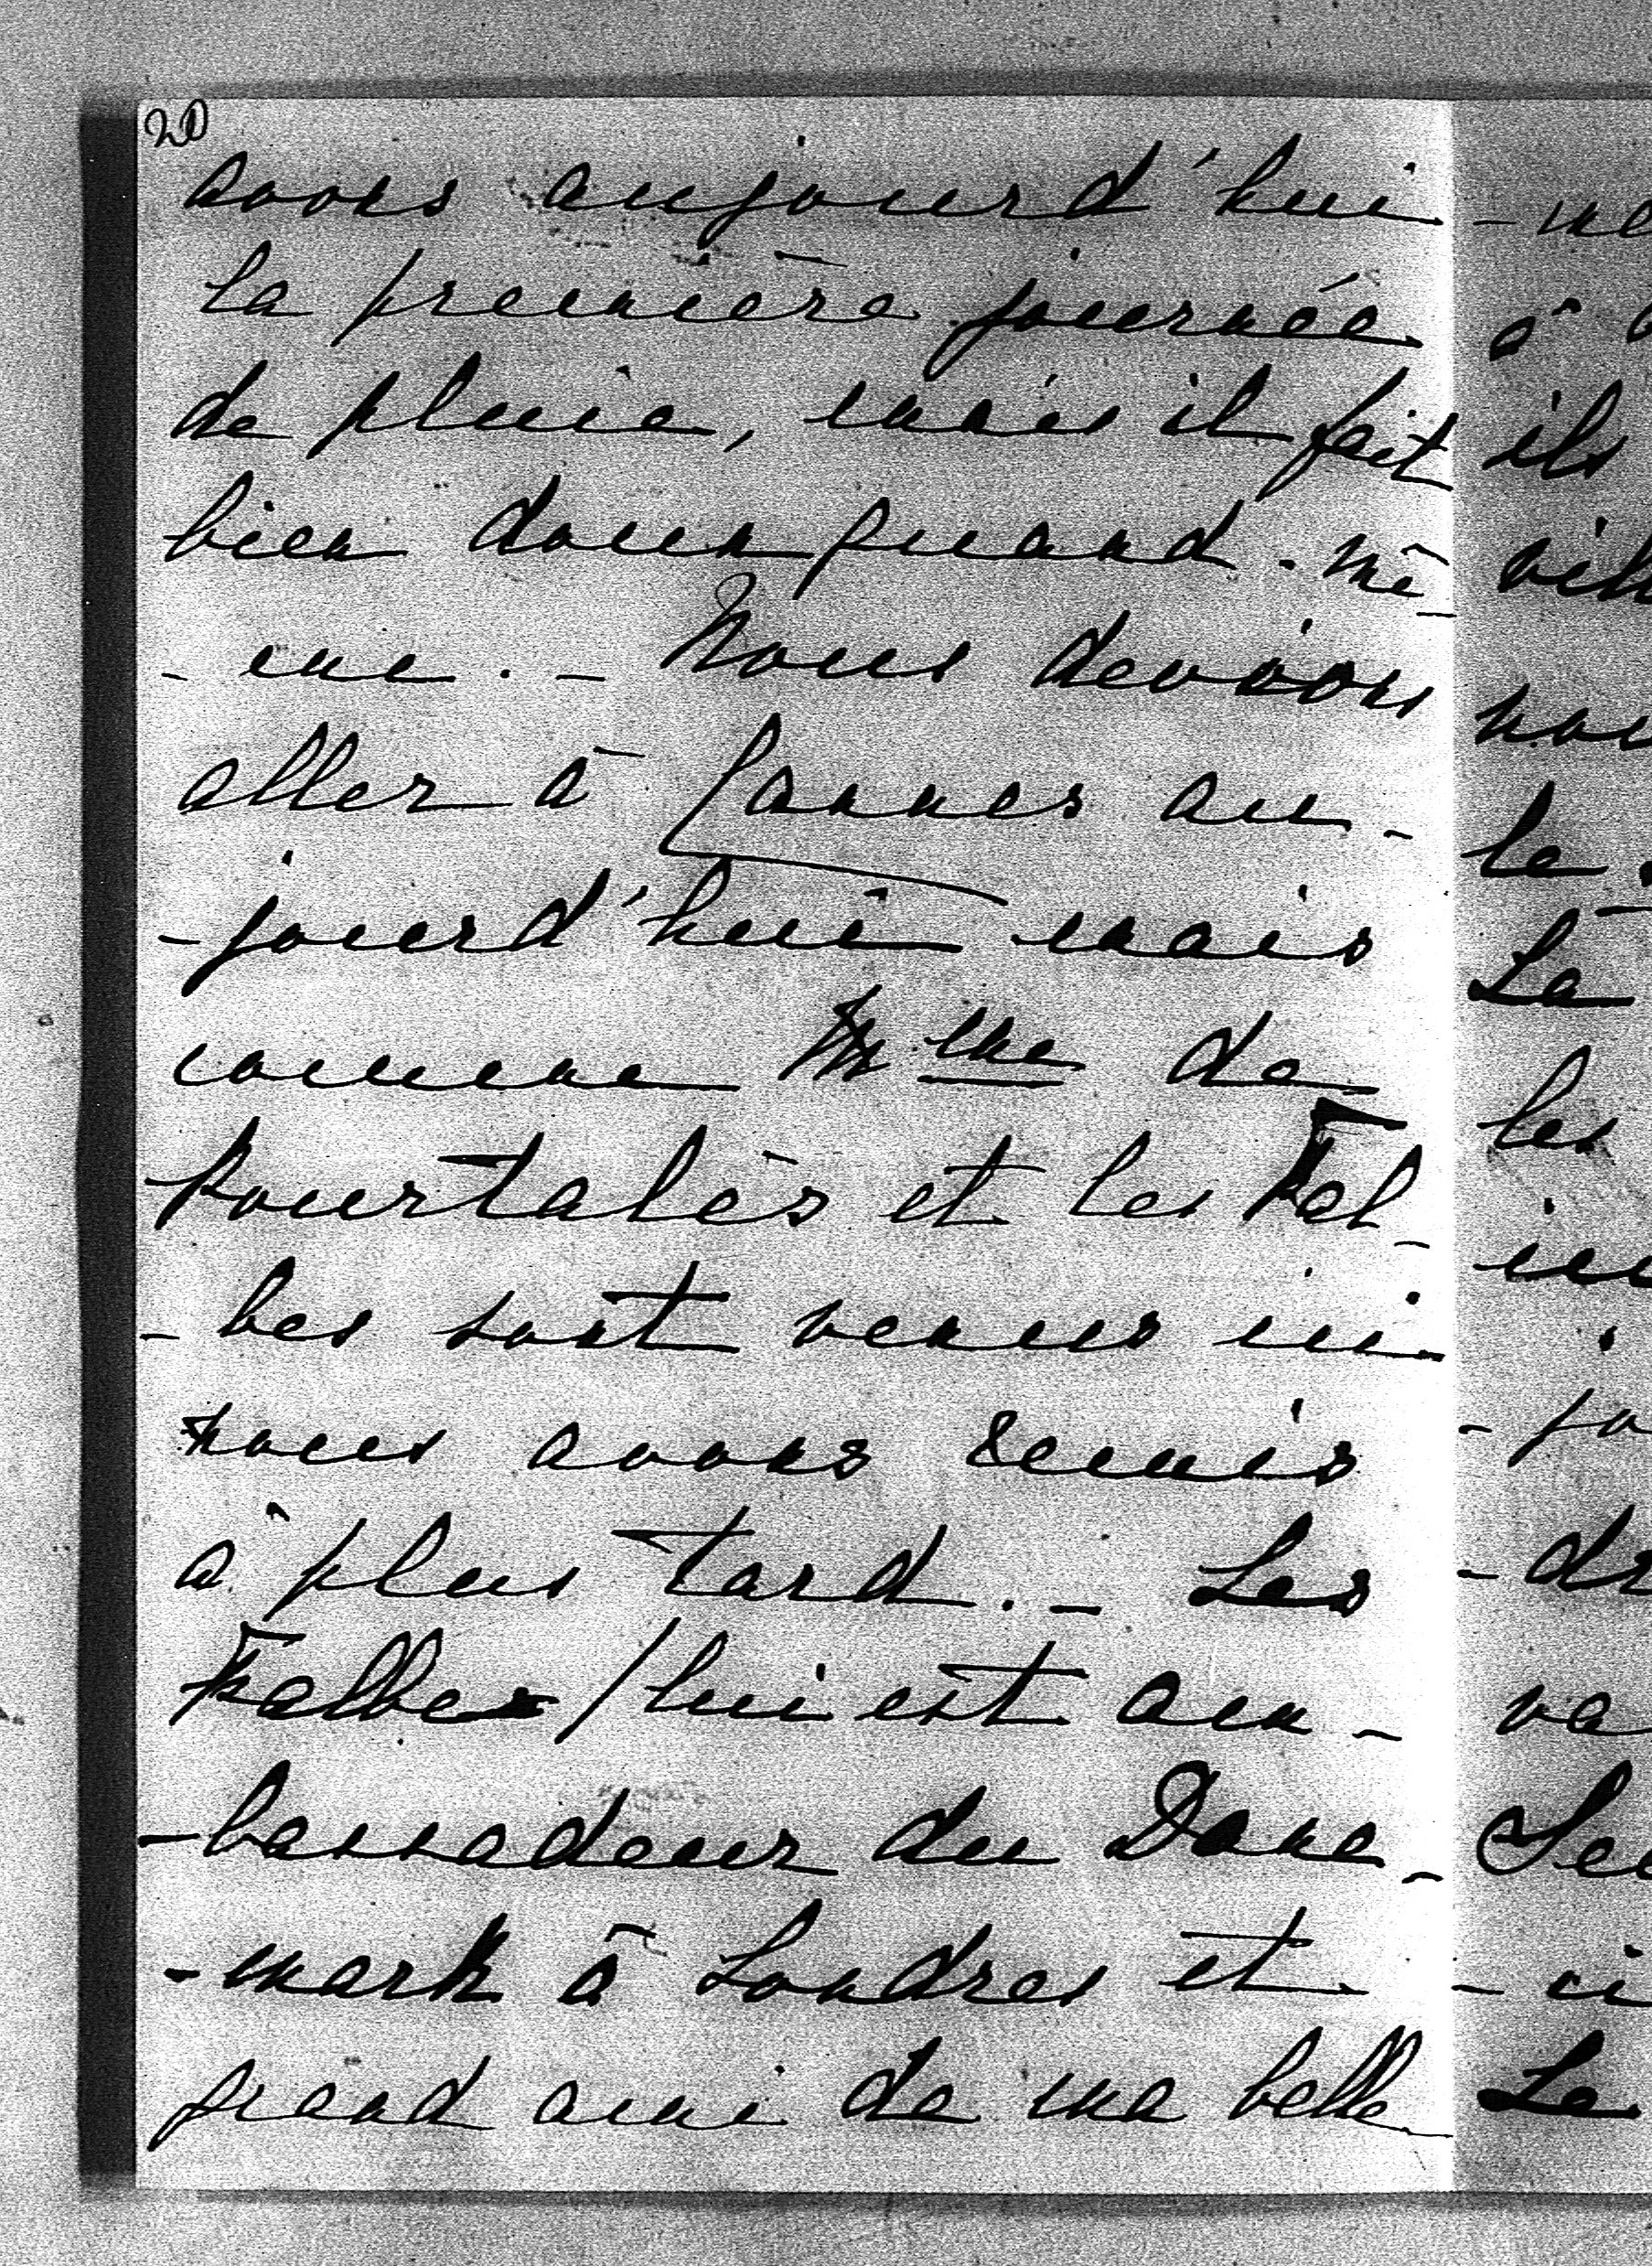 20
avons aujourd'hui
la première journée
de pluie, mais il fait
bien doux quand-mê-
-me. - Nous devions
aller à Cannes au-
-jourd'hui mais
comme Mme de
Pourtalès et les Fal-
-bes sont venus ici
nous avons remis
à plus tard. - Les
Falbes / lui est am-
-bassadeur du Dane-
-mark à Londres et
grand ami de ma belle
ils
le
La
les
va
Le